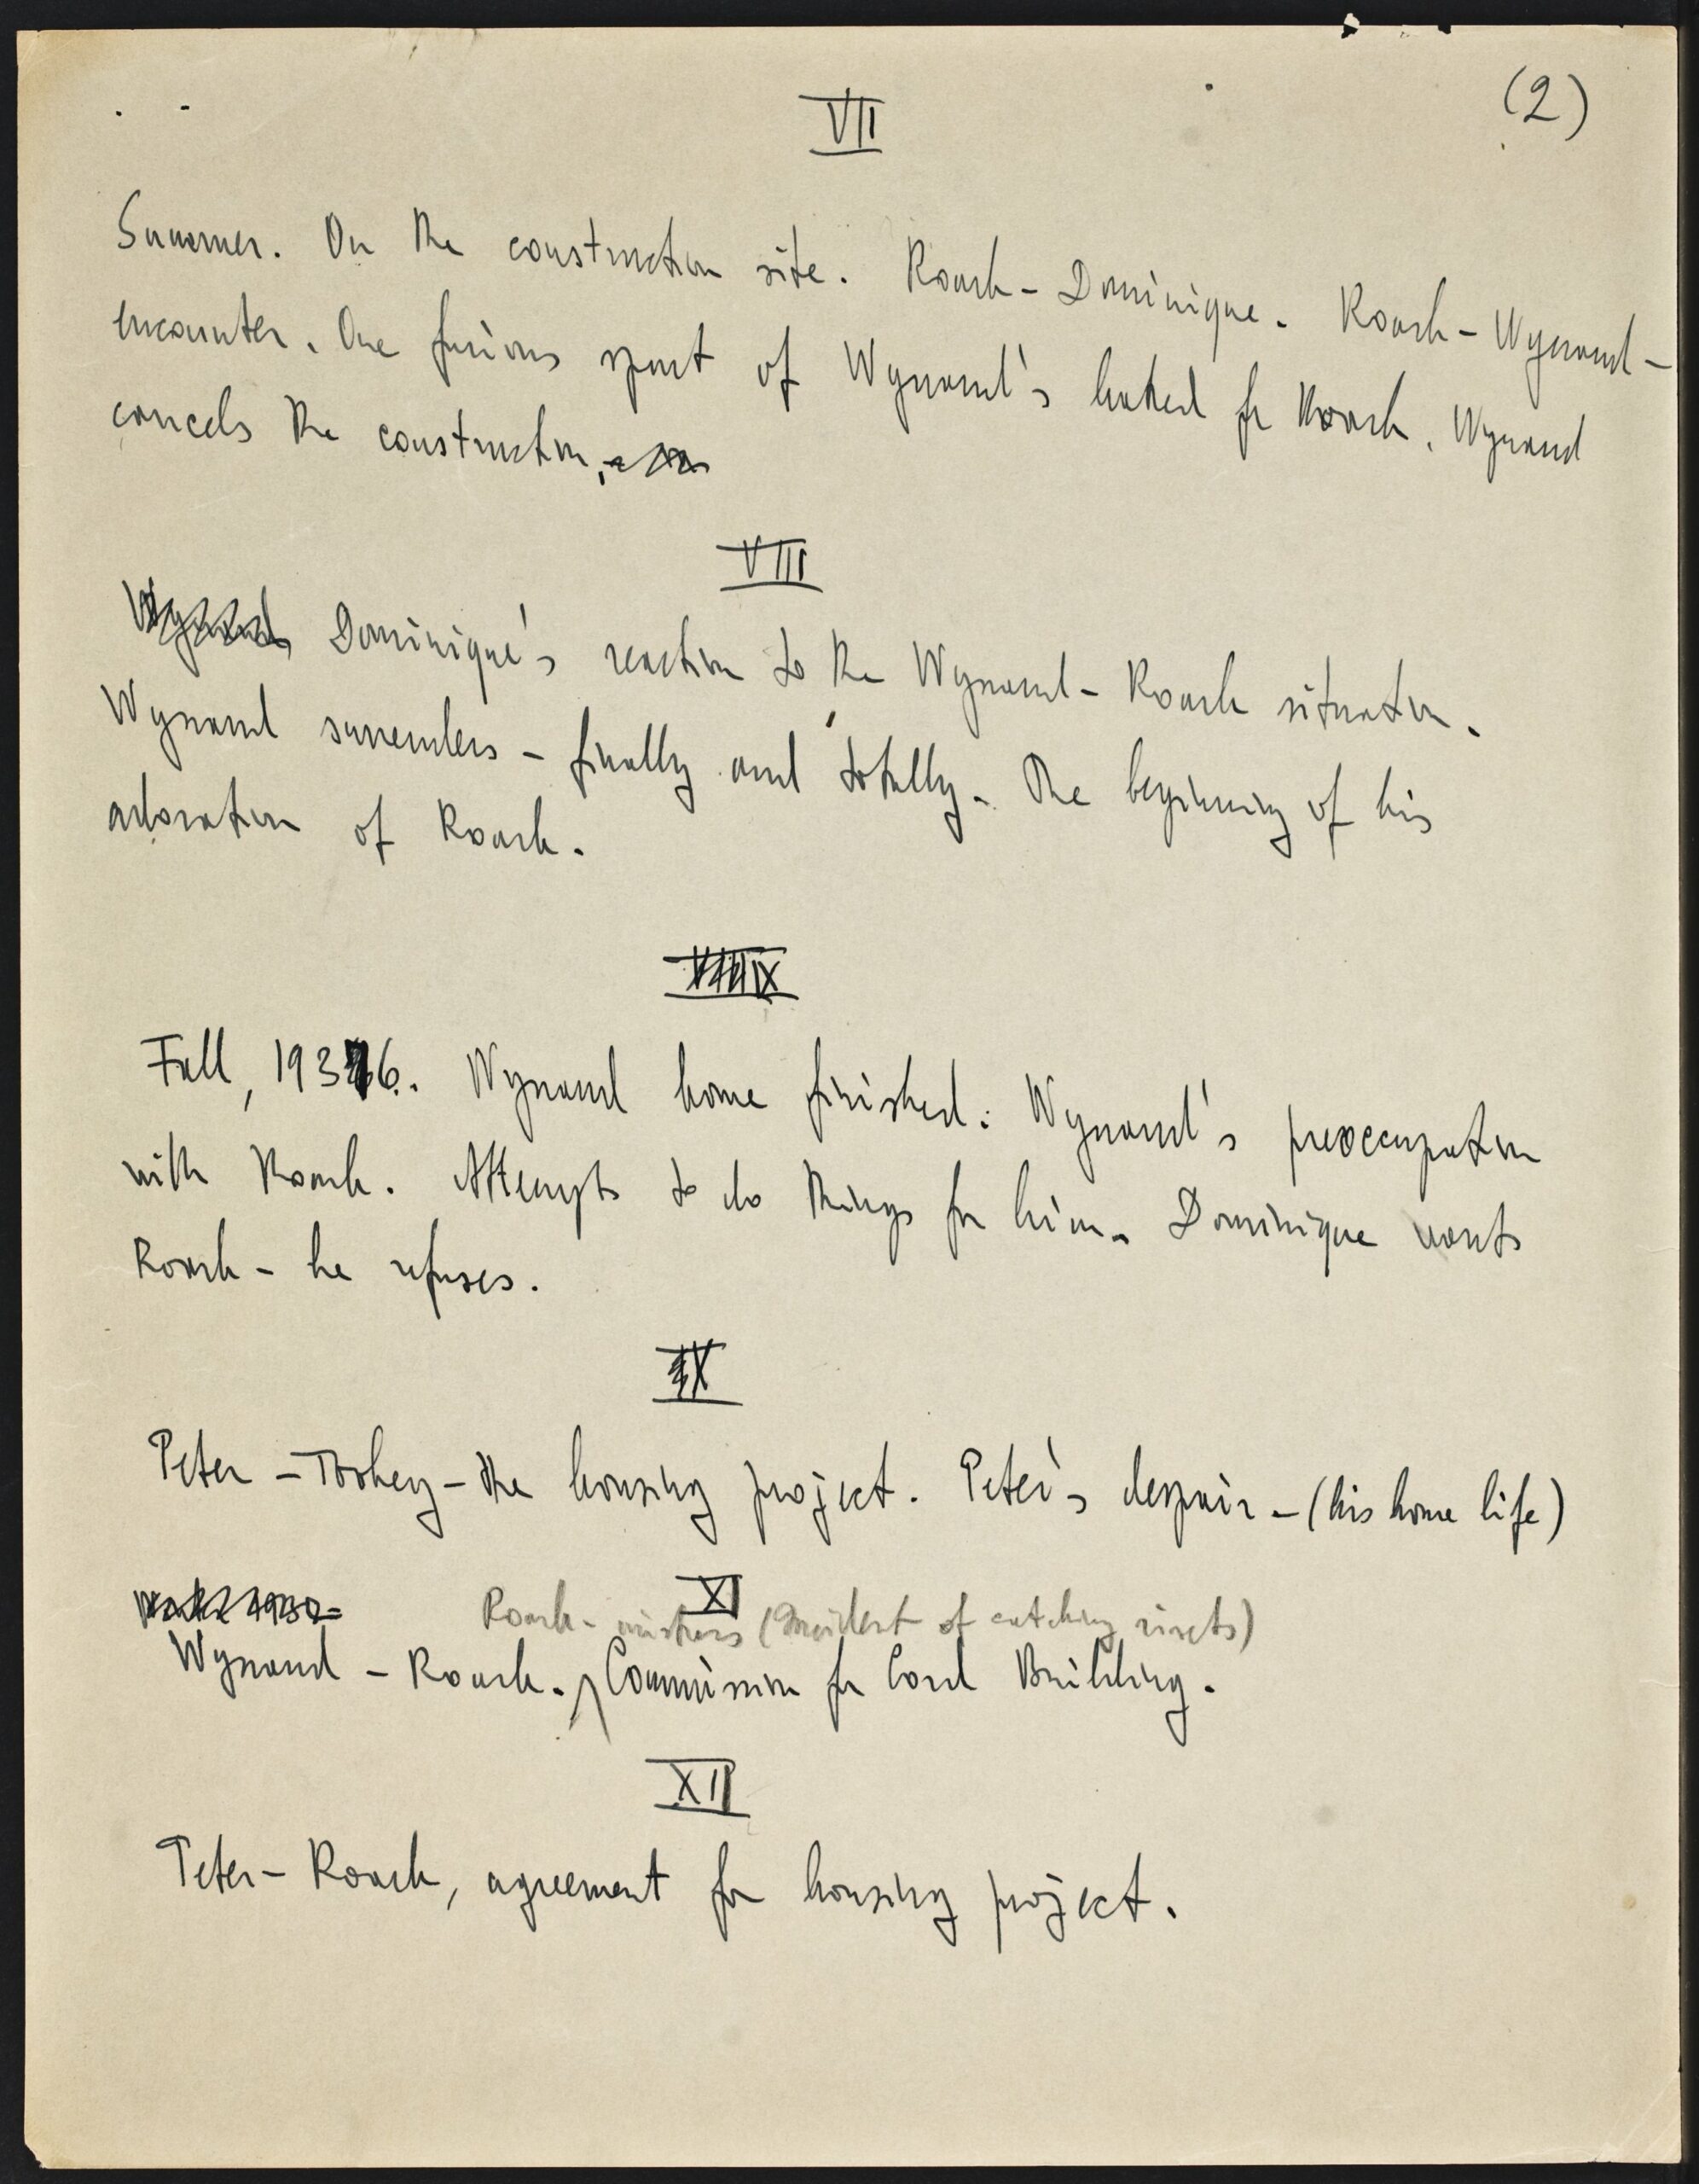 (2)
VII
Summer. On the construction site. Roark - Dominique. Roark - Wynand -
encounter. One furious spurt of Wynand's hatred for Roark. Wynand
cancels the construction.
VIII
Dominique's reaction to the Wynand - Roark situation.
Wynand surrenders - finally and totally. The beginning of his
adoration of Roark.
IX
Fall, 1936. Wynand home finished. Wynand's preoccupation
with Roark. Attempts to do things for him. Dominique wants
Roark - he refuses.
X
Peter - Toohey - the housing project. Peter's despair - (his home life)
XI
Roark - (Incident of catching rivets)
Wynand - Roark. Commission for Cord Building.
XII
Peter - Roark, agreement for housing project.